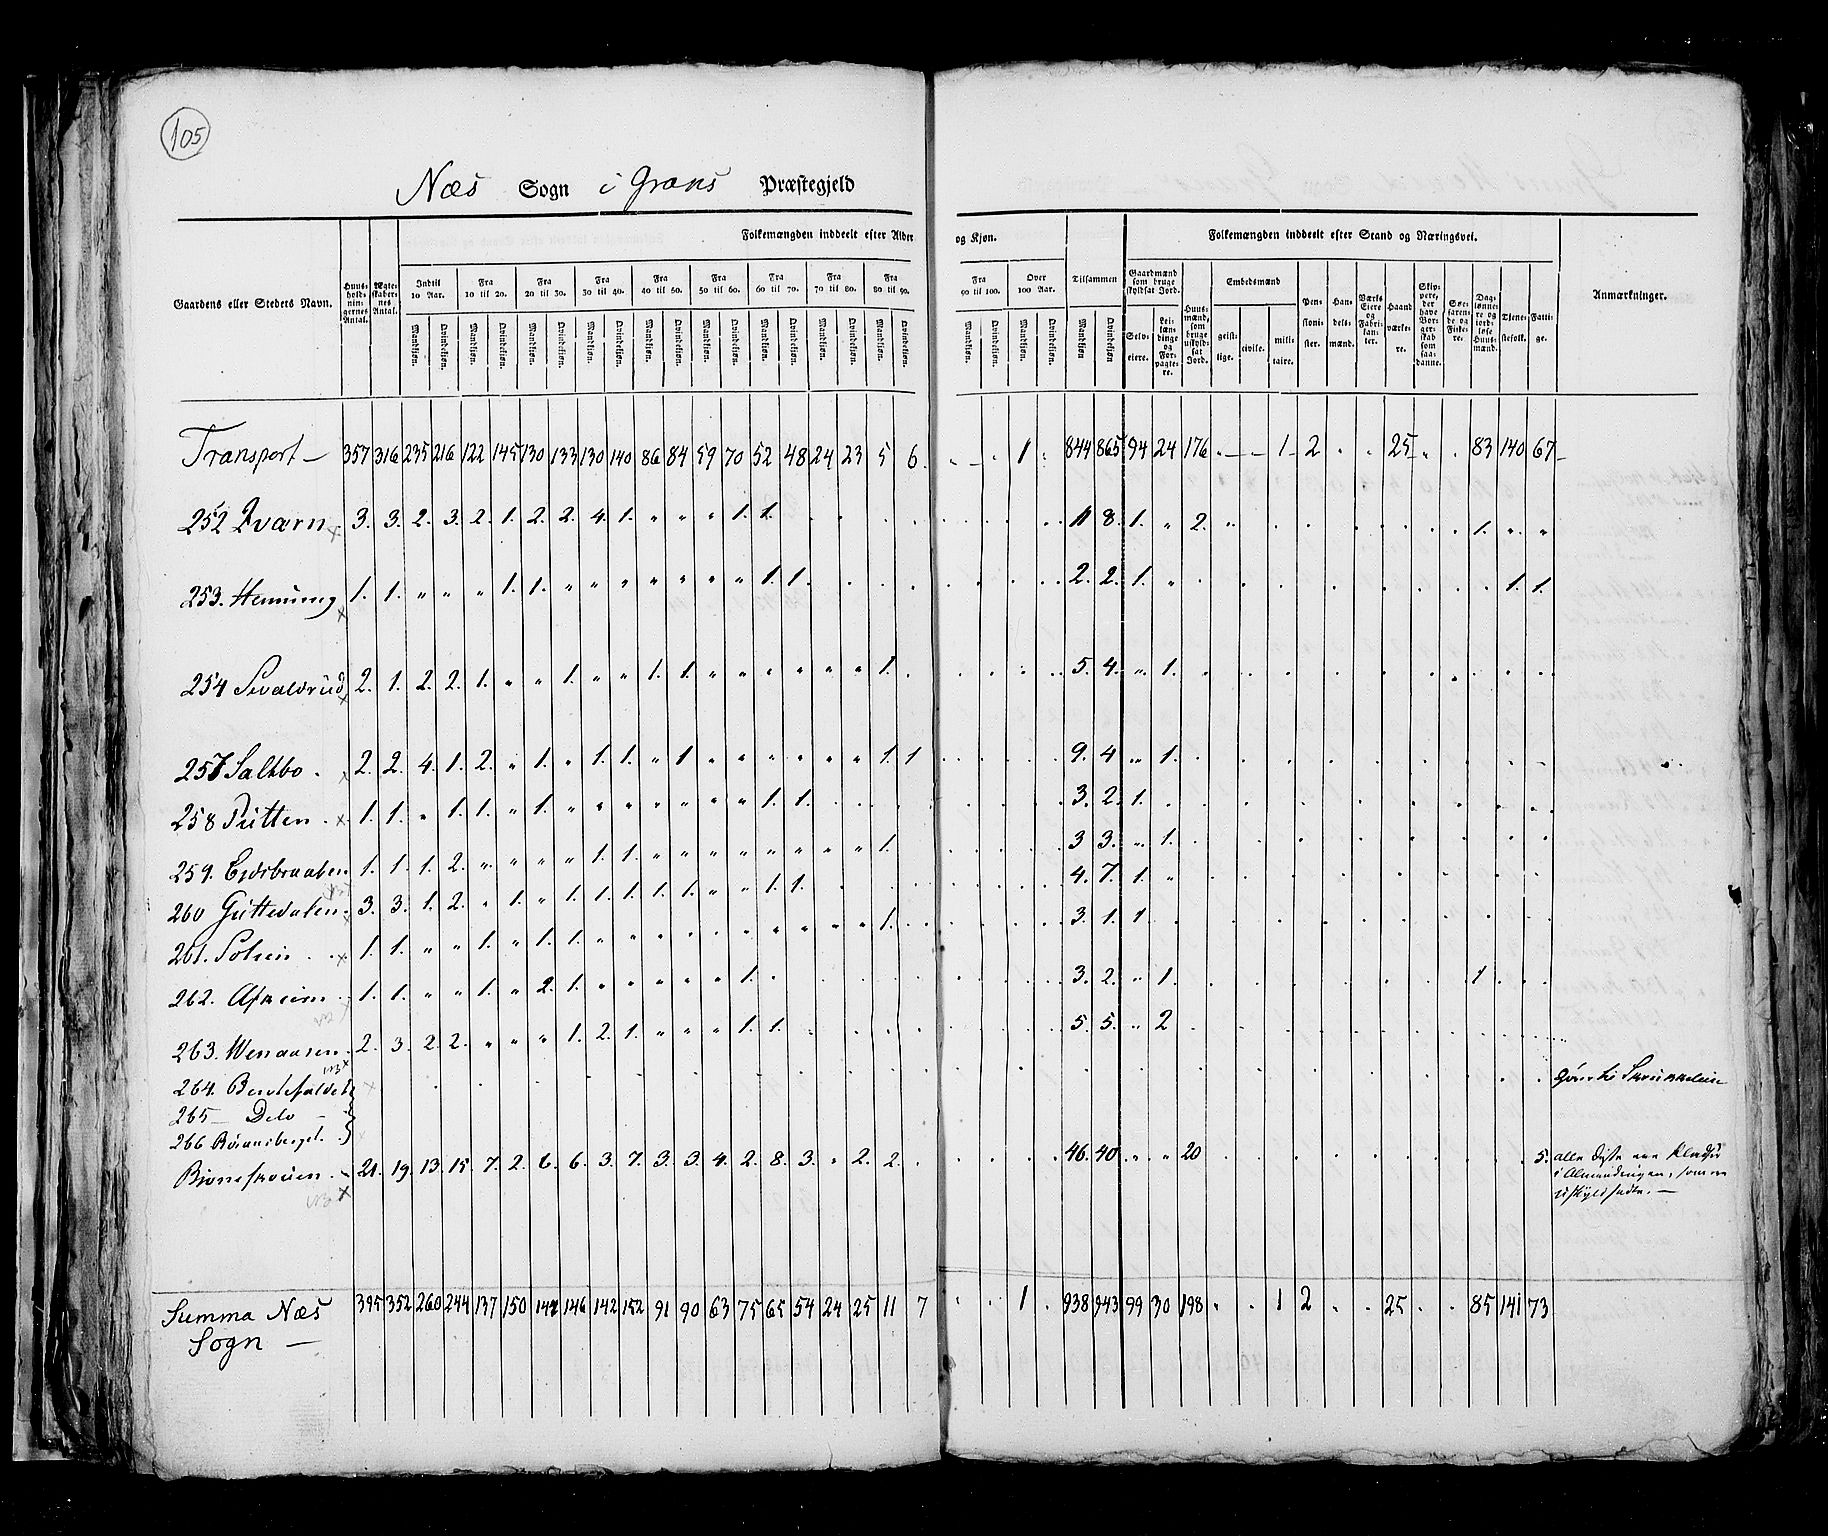 105
Næs Sogn i Grans Præstegjeld
Folkemængden inddeelt efter Alder og Kjøn.
Folkemængden inddeelt efter Stand og Næringsvei.
Gaardens eller Stedets Navn.
Huus-holdnin-gernes Antal.
Ægte-skaber-nes Antal.
Indtil 10 Aar.
Fra 10 til 20.
Fra 20 til 30.
Fra 30 til 40.
Fra 40 til 50.
Fra 50 til 60.
Fra 60 til 70.
Fra 70 til 80.
Fra 80 til 90.
Fra 90 til 100.
Over 100 Aar.
Tilsammen
Mandkjøn. Qvindekjøn.
Gaardmænd som bruge skyldsat Jord.
Selv-eiere.
Lei-læn-dinge og For-pagte-re.
Huus-mænd, som bruge uskyld-sat Jord.
Embedsmænd
geist-lige. civile. mili-taire.
Pen-sioni-ster.
Han-dels-mænd.
Værks Eiere og Fabri-kan-ter.
Haand-værke-re.
Skip-pere, der have Bor-ger-skab som saa-danne.
Søe-faren-de og Fiske-re.
Dag-lønne-re og jord-løse Huus-mænd.
Tjene-stefolk.
Fatti-ge.
Anmærkninger.
Transport – 357 316 235 216 122 145 130 133 130 140 86 84 59 70 52 48 24 23 5 6 . – . 1 . 844 865 94 24 176 . – – 1 2 . . 25 . . 83 140 67 –
252 Qværn 3. 3. 2. 3. 2. 1. 2. 2. 4. 1. „ „ „ 1. 1. 11 8. 1. „ 2. 1. „ „
253. Hennung 1. 1. „ „ „ 1. 1. „ „ „ „ „ „ „ 1. 1. 2. 2. 1. „ 1. 1.
254 Sevaldrud 2. 1. 2. 2. 1. „ „ 1. „ „ 1. 1. „ „ „ „ „ „ 1. 5. 4. „ 1.
257 Saltbo 2. 2. 4. 1. 2. „ 1. „ 1. 1. „ 1 „ „ „ „ „ „ 1. 1 9. 4 „ 1.
258 Putten 1. 1. „ 1. 1. „ 1. „ „ „ „ „ „ „ 1. 1. 3. 2. 1.
259. 1. 1. 1. 2. „ „ „ „ 1. 1. „ „ „ „ „ „ „ „ 1. 3 3. „ 1.
260 Guttedalen 3. 3. 1. 2. „ 1. „ 1. 1. 1. 1. 1. „ „ 1. 1. 4. 7. 1. „
261. Solien 1. 1. „ „ 1. „ 1. 1. „ „ „ „ „ „ „ „ „ „ 1. 3. 1. 1
262. 1. 1. „ „ 1. „ 2. 1. „ „ „ „ „ 1. 3. 2. „ 1. 1
263. Wenaasen 2. 3. 2. 2. „ „ „ 1. 2. 1. „ „ „ 1. 1. 5. 5. „ 2
264.
265 – Delo –
266
21. 19. 13. 15. 7. 2. 6. 6. 3. 7. 3. 3. 4. 2. 8. 3. „ 2. 2. 46. 40 „ „ 20 5. alle disse ere
i Almindingen, som ere
uskyldsadte. –
Summa Næs 395 352 260 244 137 150 144 146 142 152 91 90 63 75 65 54 24 25 11 7 . . 1 . 938 943 99 30 198 . . 1 2 . . 25 . . 85 141 73
Sogn –